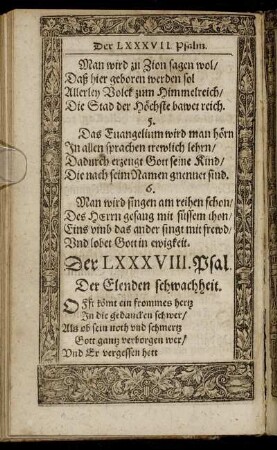 Der LXXXVII. Psalm.
Man wird zu Zion sagen wol/
Daß hier geboren werden sol
Allerley Volck zum Himmelreich/
Die Stad der Höchste bawet reich.
5.
Das Euangelium wird man hörn
In allen sprachen trewlich lehrn/
Dadurch erzeugt Gott seine Kind/
Die nach seim Namen gnennet sind.
6.
Man wird singen am reihen schon/
Des HErrn gesang mit süssem thon/
Eins vmb das ander singt mit frewd/
Vnd lobet Gott in ewigkeit.
Der LXXXVIII. Psal.
Der Elenden schwachheit.
Offt kömt ein frommes hertz
In die gedancken schwer/
Als ob sein noth vnd schmertz
Gott gantz verborgen wer/
Vnd Er vergessen hett